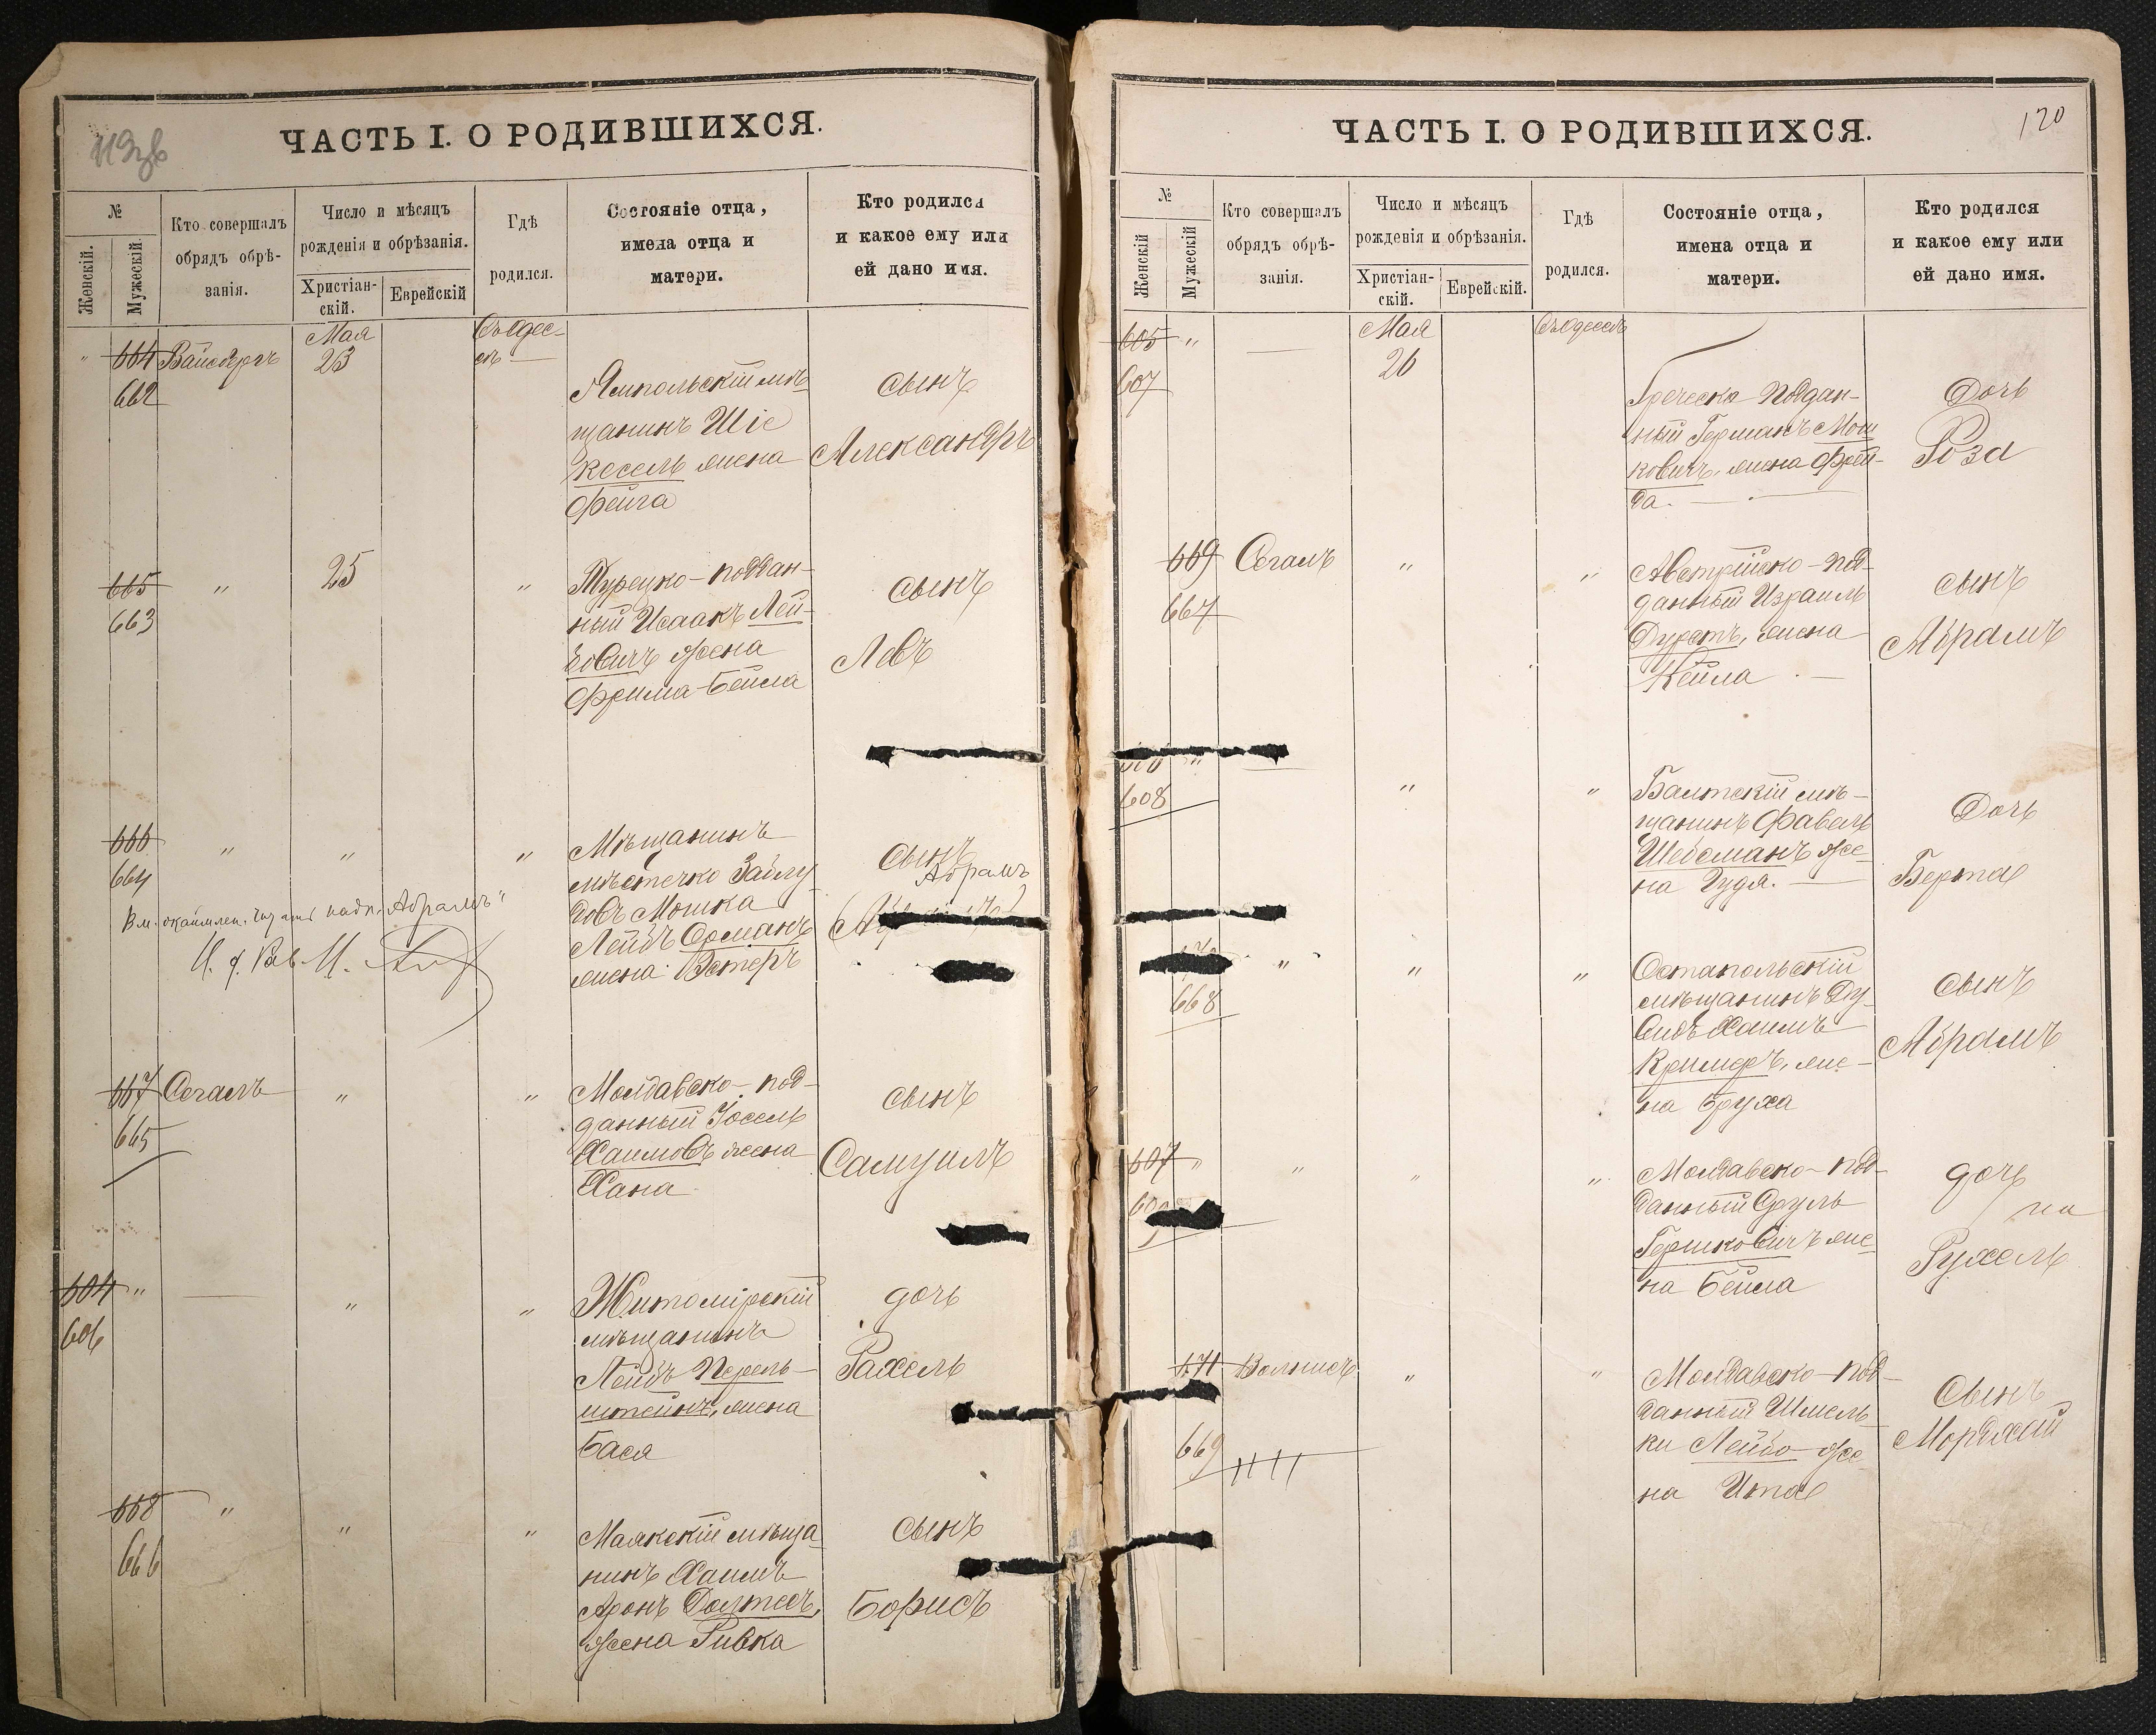 ЧАСТЬ I. О РОДИВШИХСЯ.
№
Женскій.
Мужескій.
Кто совершалъ
обрядъ обрѣ-
занія.
Число и мѣсяцъ
рожденія и обрѣзанія.
Христіан-
скій.
Еврейскій
Гдѣ
родился.
Состояніе отца,
имена отца и
матери.
Кто родился
и какое ему или
ей дано имя.
664
662
Вайсбергъ
Мая
23
Въ Одес-
сѣ
Ямпольскій мѣ-
щанинъ Шіе
Косель жена
Фейга
сынъ
Александръ
665
663
"
25
"
Турецко-поддан-
ный Исаакъ Лей-
бовичъ жена
Фрима-Бейла
сынъ
Левъ
666
664
"
"
"
Мѣщанинъ
мѣстечко
Мошка
Лейбъ
жена Эстеръ
сынъ
Абрамъ
"Абрамъ"
667
665
Сегалъ
"
"
Молдавско-под-
данный Іосель
Хаимовъ жена
Хана
сынъ
Самуилъ
604
606
"
"
"
Житомірскій
мѣщанинъ
Лейбъ Перель-
штейнъ, жена
Бася
дочь
Рахель
668
666
"
"
"
Маякскій мѣща-
нинъ Хаимъ
Аронъ
жена Ривка
сынъ
Борисъ
ЧАСТЬ I. О РОДИВШИХСЯ.
120
№
Женскій
Мужескій
Кто совершалъ
обрядъ обрѣ-
занія.
Число и мѣсяцъ
рожденія и обрѣзанія.
Христіан-
скій.
Еврейскій.
Гдѣ
родился.
Состояніе отца,
имена отца и
матери.
Кто родился
и какое ему или
ей дано имя.
605
607
"
Мая
26
Въ Одессѣ
Греческо поддан-
ный Германъ Мош
ковичъ, жена Фрей-
да.
Дочь
Роза
669
667
Сегалъ
"
"
Австрійско-под-
данный Израиль
Дурстъ, жена
Кейла
сынъ
Абрамъ
608
"
"
Балтскій мѣ-
щанинъ Фавель
же-
на Гудя.
Дочь
Берта
668
"
"
"
Остапольскій
мѣщанинъ Ду-
видъ Хаимъ
Кримеръ, же-
на Бруха
сынъ
Абрамъ
607
"
"
"
"
Молдавско-под-
данный Сруль
Гершковичъ же-
на Бейла
дочь
Рухель
671
669
"
"
Молдавско-под-
данный Шмель
ки Лейбо же-
на Ита
Сынъ
Мордхай